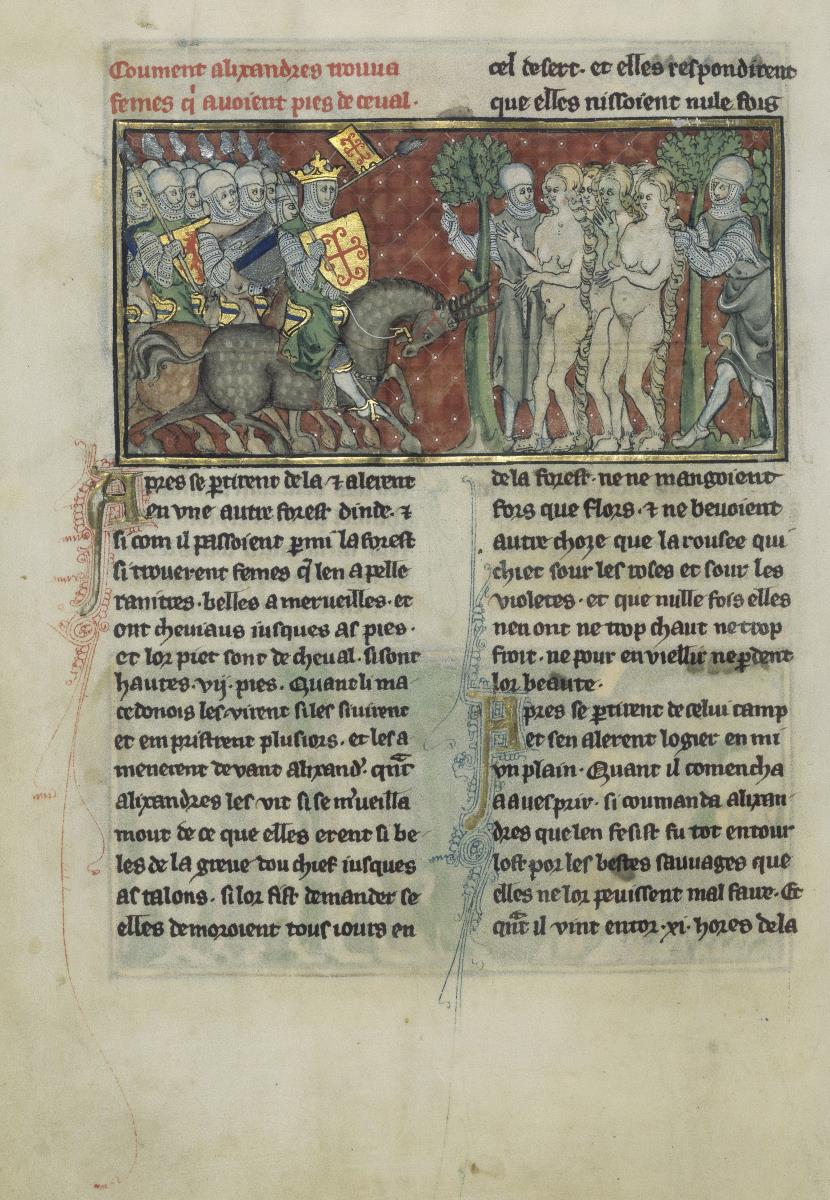 Coument alixandres trouua
femes q̇ auoient pies de ceual·
Apres se ꝑtirent de la ⁊ alerent
en vne autre forest dinde· ⁊
si com il passoient ꝑmi la forest
si trouerent femes q̄ len apelle
belles a merueilles· et
ont cheuiaus iusques as pies·
et lor piet sont de cheual· si sont
hautes· vij· pies· Quant li ma
cedonois les virent si les siuirent
et em pristrent plusiors· et les a
menerent deuant alixand'· q̄nt
alixandres les vit si se m'ueilla
mout de ce que elles erent si be
les de la greue dou chief iusques
as talons· si lor fist demander se
elles demoroient tous iours en
cel desert· et elles respondirent
que elles nissoient nule fois
de la forest· ne ne mangoient
fors que flors· ⁊ ne beuoient
autre choze que la rousee qui
chiet sour les roses et sour les
violetes· et que nulle fois elles
nen ont ne trop chaut ne trop
froit· ne pour enviellir ne ꝑdent
lor beaute·
Apres se ꝑtirent de celui camp
et sen alerent logier en mi
vn plain· Quant il comencha
a auesprir· si coumanda alixan
dres que len fesist fu tot entour
lost por les bestes sauuages que
elles ne lor peuissent mal faire· Et
q̄nt il vint entor· xi· hores de la